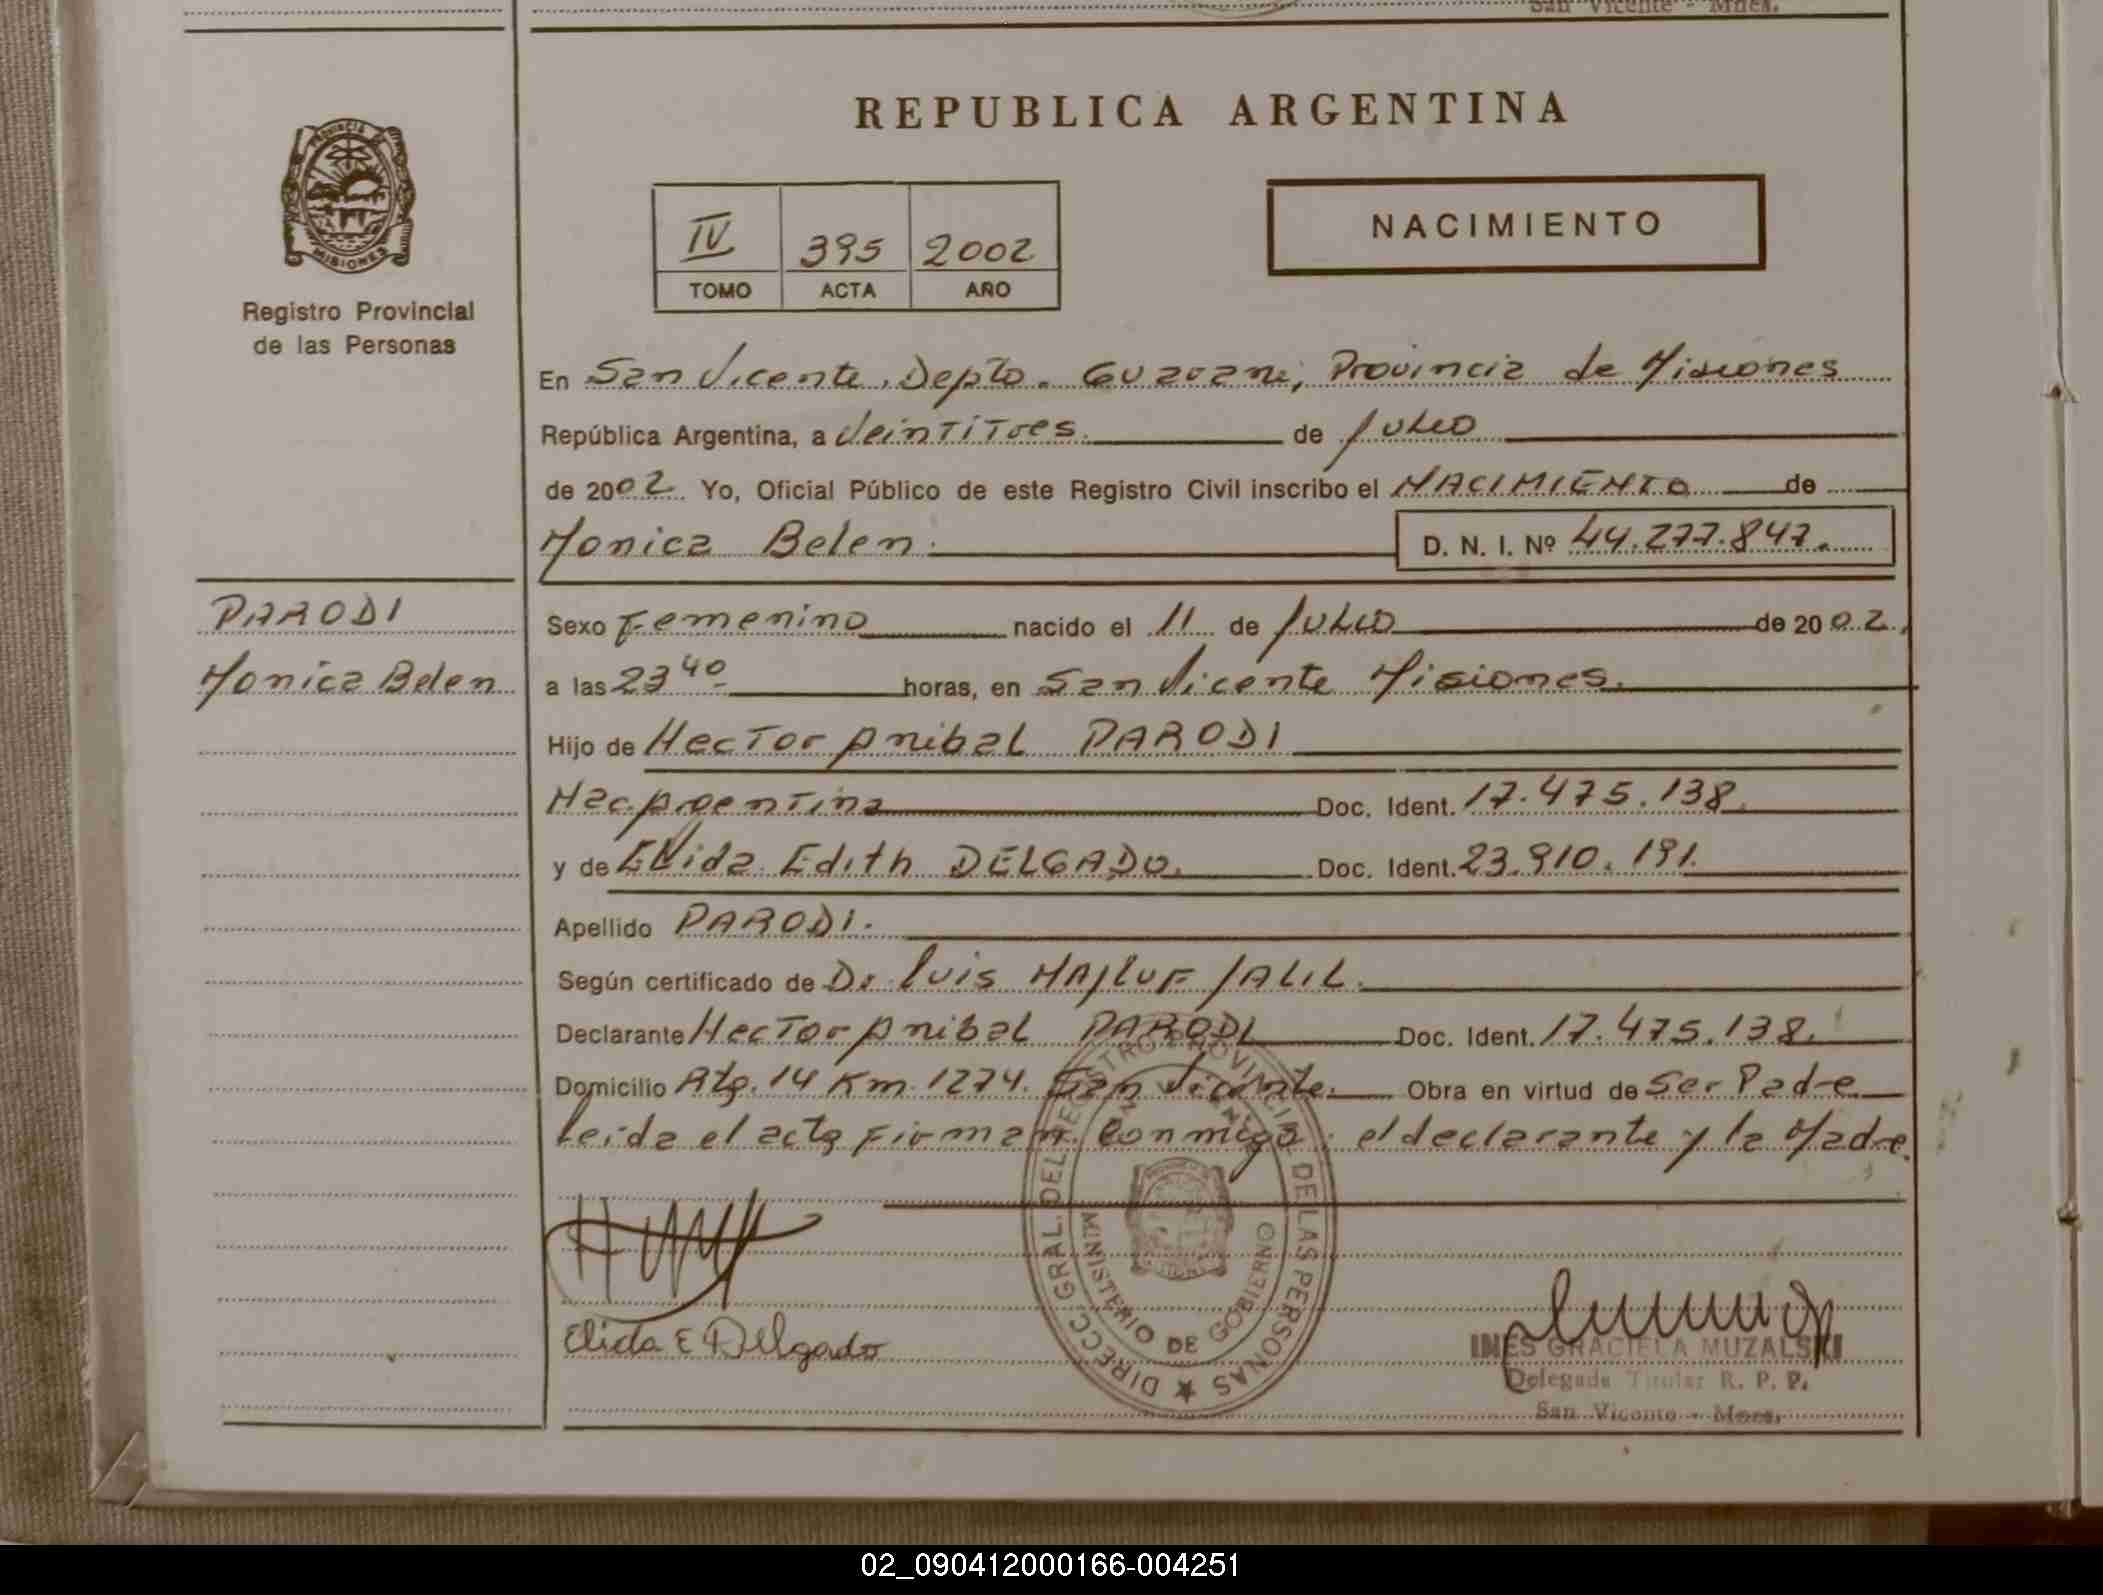 San Vicente - Mnes.
REPUBLICA ARGENTINA
PROVINCIA DE
MISIONES
Registro Provincial
de las Personas
IV 395 2002
TOMO ACTA AÑO
NACIMIENTO
En San Vicente, Depto. Guarani, Provincia de Misiones
República Argentina, a Veintitres de Julio
de 2002 Yo, Oficial Público de este Registro Civil inscribo el NACIMIENTO de
Monica Belen. D. N. I. Nº 44.277.847.
PARODI
Monica Belen
Sexo Femenino nacido el 11 de Julio de 2002,
a las 23 40 horas, en San Vicente Misiones.
Hijo de Hector Anibal PARODI
Nac. Argentina Doc. Ident. 17.475.138.
y de Elida Edith DELGADO. Doc. Ident. 23.910.191.
Apellido PARODI.
Según certificado de Dr Luis MAJLUF JALIL.
Declarante Hector Anibal PARODI Doc. Ident. 17.475.138.
Domicilio Rta. 14 Km. 1274. San Vicente. Obra en virtud de Ser Padre
Leida el acta Firman Conmigo; el declarante y la Madre.
DIRECC. GRAL. DEL REGISTRO PROVINCIAL DE LAS PERSONAS
MINISTERIO DE GOBIERNO
Elida E Delgado
INES GRACIELA MUZALSKI
Delegada Titular R. P. P.
San Vicente - Mnes.
02_090412000166-004251